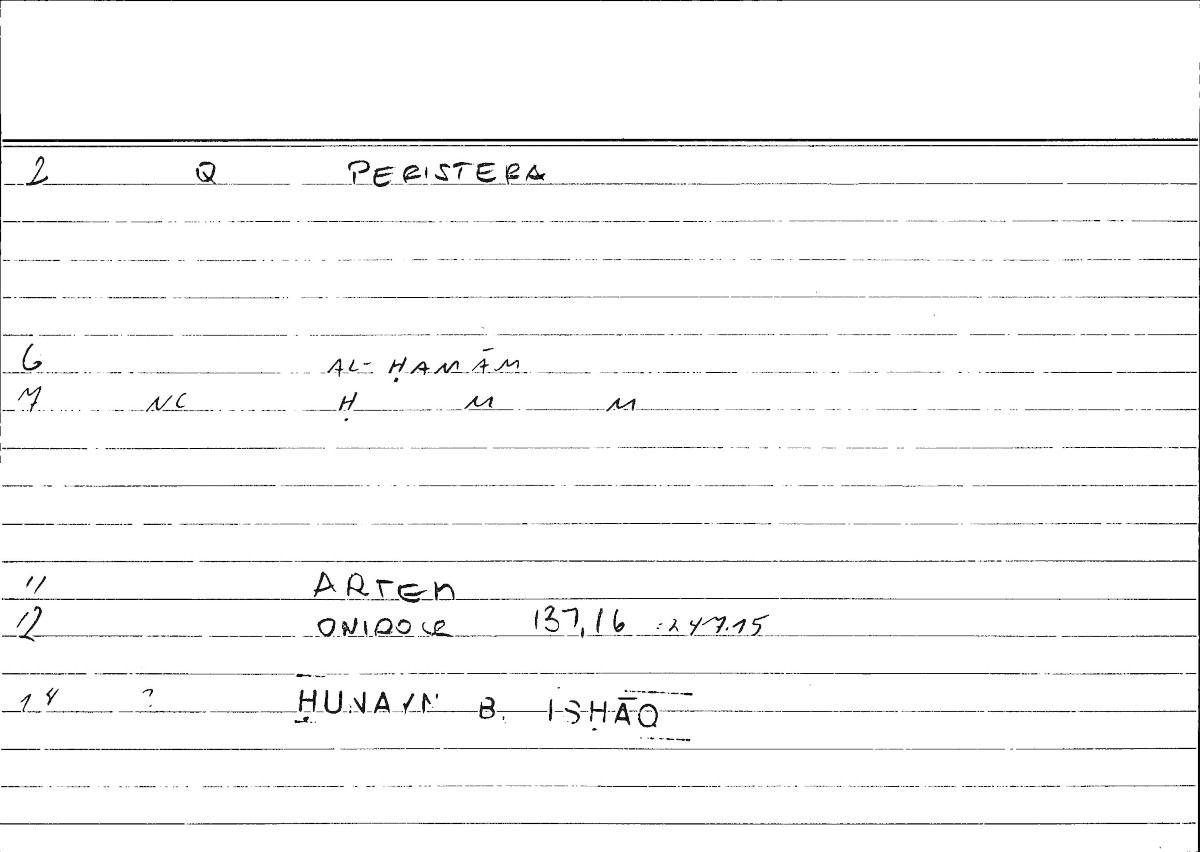 2 Q PERISTERA
6 AL-ḤAMĀM
7 NC Ḥ M M
11 ARTEM
12 ONIROCR 137,16 :247.15
14 ? ḤUNAYN B. ISḤĀQ